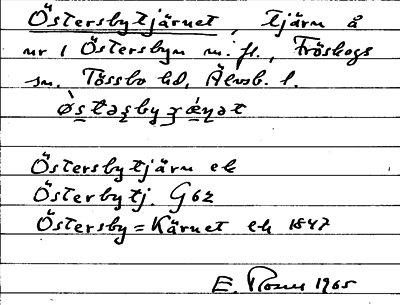 Östersbytjärnet, tjärn å
nr 1 Östersbyn m. fl., Fröskogs
sn. Tössbo hd, Älvsb. l.
Östersbytjärn ek
Österbytj. G62
Östersby=Kärnet ek 1847
E. 1965